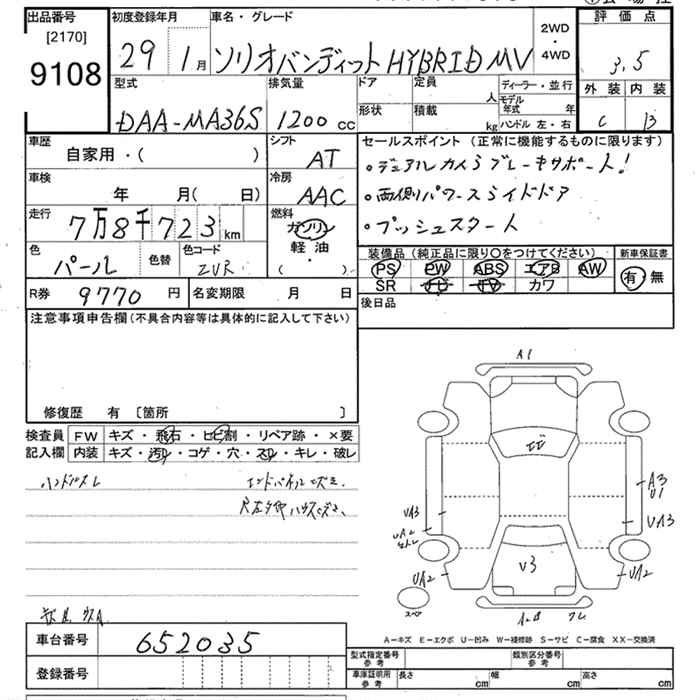 出品番号 初度登録年月 車名・グレード 評価点
[2170] 9108
29 1月 ソリオバンディット HYBRID MV 2WD・4WD 3.5
型式 排気量 ドア 定員 人 ディーラー・並行 外装 内装
形状 積載 kg モデル年式 年 ハンドル 左・右
DAA-MA36S 1200 CC C B
車歴 シフト セールスポイント (正常に機能するものに限ります)
自家用・( ) AT
・デュアルカメラブレーキサポート!
車検 冷房
年 月( 日) AAC
・両側パワースライドドア
走行 燃料
7万8千723 km ガソリン 軽油 ・ ( )
・プッシュスタート
色 色替 色コード
パール ZVR
装備品 (純正品に限り〇をつけてください) 新車保証書
PS PW ABS エアB AW 有・無
SR TV カワ
R券 9770円 名変期限 月 日
後日品
注意事項申告欄 (不具合内容等は具体的に記入して下さい)
修復歴 有 [箇所 ]
検査員 FW キズ・飛石・ヒビ割・リペア跡・×要
記入欄 内装 キズ・汚れ・コゲ・穴・スレ・キレ・破レ
ハンドルスレ
A1
A3
U1
UA3
UA3
UA2
UA2
UA2
U3
スペア
A-キズ E-エクボ U-凹み W-補修跡 S-サビ C-腐食 XX-交換済
車台番号 652035
登録番号
型式指定番号 参考 類別区分番号 参考
車庫証明用 参考 長さ cm 幅 cm 高さ cm